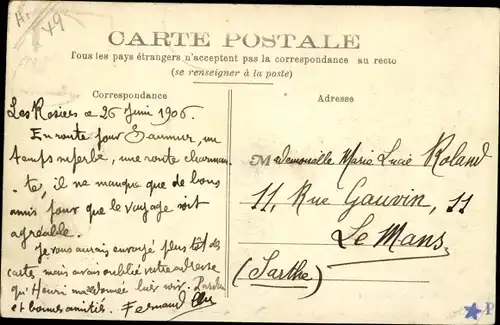 49
CARTE POSTALE
Tous les pays étrangers n'acceptent pas la correspondance au recto
(se renseigner à la poste)
Correspondance
Adresse
Les Rosiers le 26 Juin 1906.
En route pour Saumur, un
temps superbe, une route charman-
te, il ne manque que de bons
amis pour que le voyage soit
agréable.
Je vous aurais envoyé plus tôt des
carte mais avais oublié votre adresse
qu'Henri m'a donnée hier soir. Pardon
et bonnes amitiés. Fernand
Mademoiselle Marie Lucie Roland
11, Rue Gauvin, 11
Le Mans
(Sarthe)